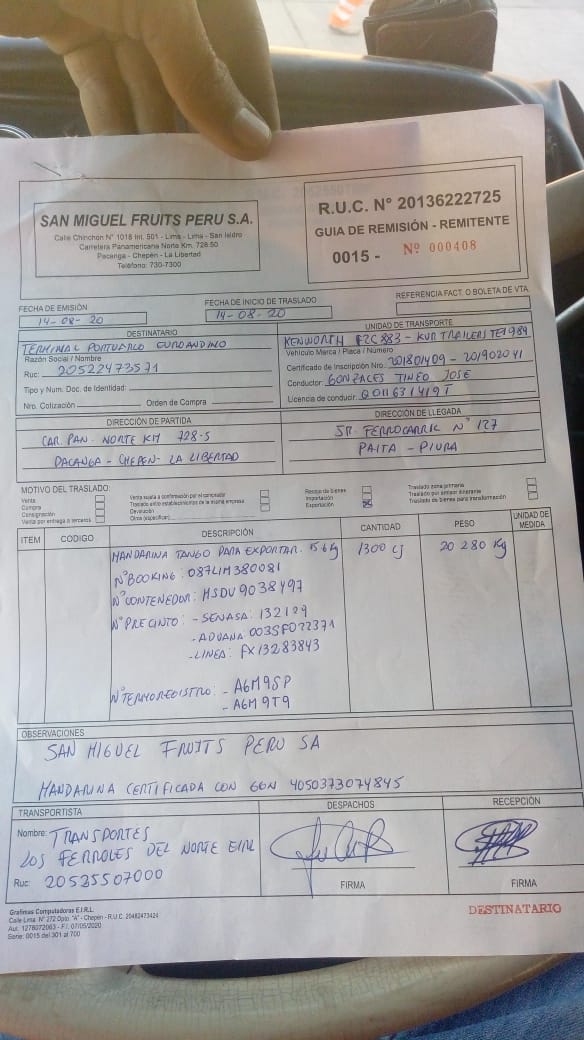 SAN MIGUEL FRUITS PERU S.A.
Calle Chinchon N° 1018 Int. 501 - Lima - Lima - San Isidro
Carretera Panamericana Norte Km. 728.50
Pacanga - Chepén - La Libertad
Teléfono: 730-7300
R.U.C. N° 20136222725
GUIA DE REMISIÓN - REMITENTE
0015 - Nº 000408
FECHA DE EMISIÓN
14-08-20
FECHA DE INICIO DE TRASLADO
14-08-20
REFERENCIA FACT. O BOLETA DE VTA.
DESTINATARIO
TERMINAL PORTUARIO EUROANDINO
Razón Social / Nombre
Ruc: 20522473571
Tipo y Num. Doc. de Identidad:
Nro. Cotización: Orden de Compra
UNIDAD DE TRANSPORTE
KENWORTH F2C883 - KUR TRAILERS TE1984
Vehículo Marca / Placa / Número
Certificado de Inscripción Nro. 201801409 - 201902041
Conductor: GONZALES TINEO JOSE
Licencia de conducir: Q011631419T
DIRECCIÓN DE PARTIDA
CAR. PAN. NORTE KM 728-5
PACANGA - CHEPEN - LA LIBERTAD
DIRECCIÓN DE LLEGADA
JR. FERROCARRIL N° 127
PAITA - PIURA
MOTIVO DEL TRASLADO:
Venta
Compra
Consignación
Venta por entrega a terceros
Venta sujeta a confirmación por el comprador
Traslado entre establecimientos de la misma empresa
Devolución
Otros (especificar)
Recojo de bienes
Importación
Exportación
Traslado zona primaria
Traslado por emisor itinerante
Traslado de bienes para transformación
ITEM CODIGO DESCRIPCIÓN CANTIDAD PESO UNIDAD DE MEDIDA
MANDARINA TANGO PARA EXPORTAR. 15.6 Kg 1300 CJ 20 280 Kg
N° BOOKING: 087LIM380081
N° CONTENEDOR: MSDU 9038497
N° PRECINTO: - SENASA: 132129
- ADUANA 003SF022371
- LINEA: FX13283843
N° TERMOREGISTRO: - A6M9SP
- A6M9T9
OBSERVACIONES
SAN MIGUEL FRUITS PERU SA
MANDARINA CERTIFICADA CON GGN 4050373074845
TRANSPORTISTA
Nombre: TRANSPORTES
LOS FERROLES DEL NORTE EIRL
Ruc: 20535507000
DESPACHOS
FIRMA
RECEPCIÓN
FIRMA
Grafimas Computadoras E.I.R.L.
Calle Lima N° 272 Dpto. "A" - Chepén - R.U.C. 20482473424
Aut. 1278072063 - F.I. 07/05/2020
Serie: 0015 del 301 al 700
DESTINATARIO